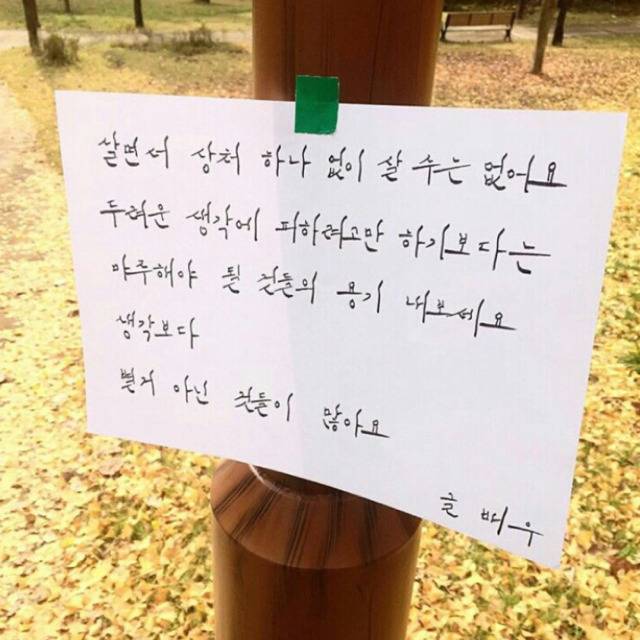 살면서 상처 하나 없이 살 수는 없어요
두려운 생각에 피하려고만 하기보다는
마주해야 될 것들의 용기 내보세요
생각보다
별거 아닌 것들이 많아요
글 배우